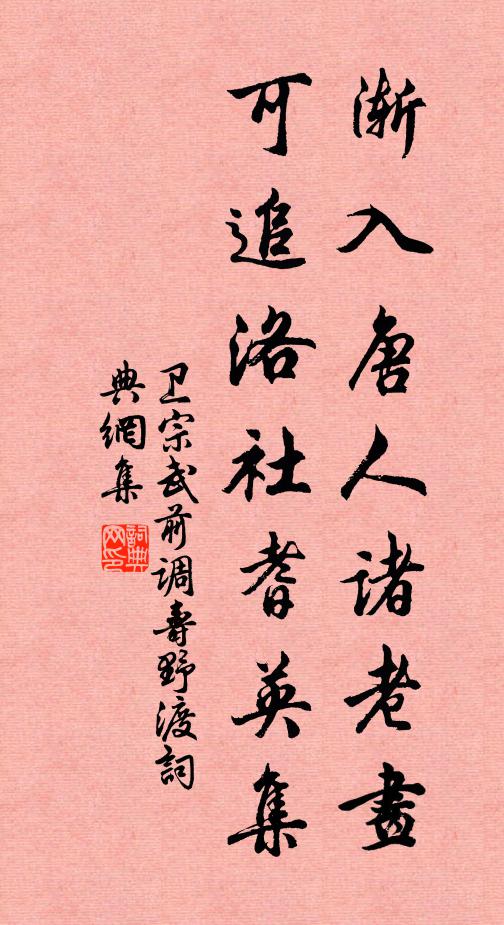 渐入唐人诸老畫
可追洛社耆英集
卫宗武前调寿野渡詞
典網集
詞典网印